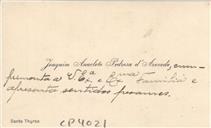 Joaquim Anacleto Pedrosa d'Azevedo, cum-
primenta a V. Exª e Exma Familia e
apresenta sentidos pesames.
Santo Thyrso
CP4021